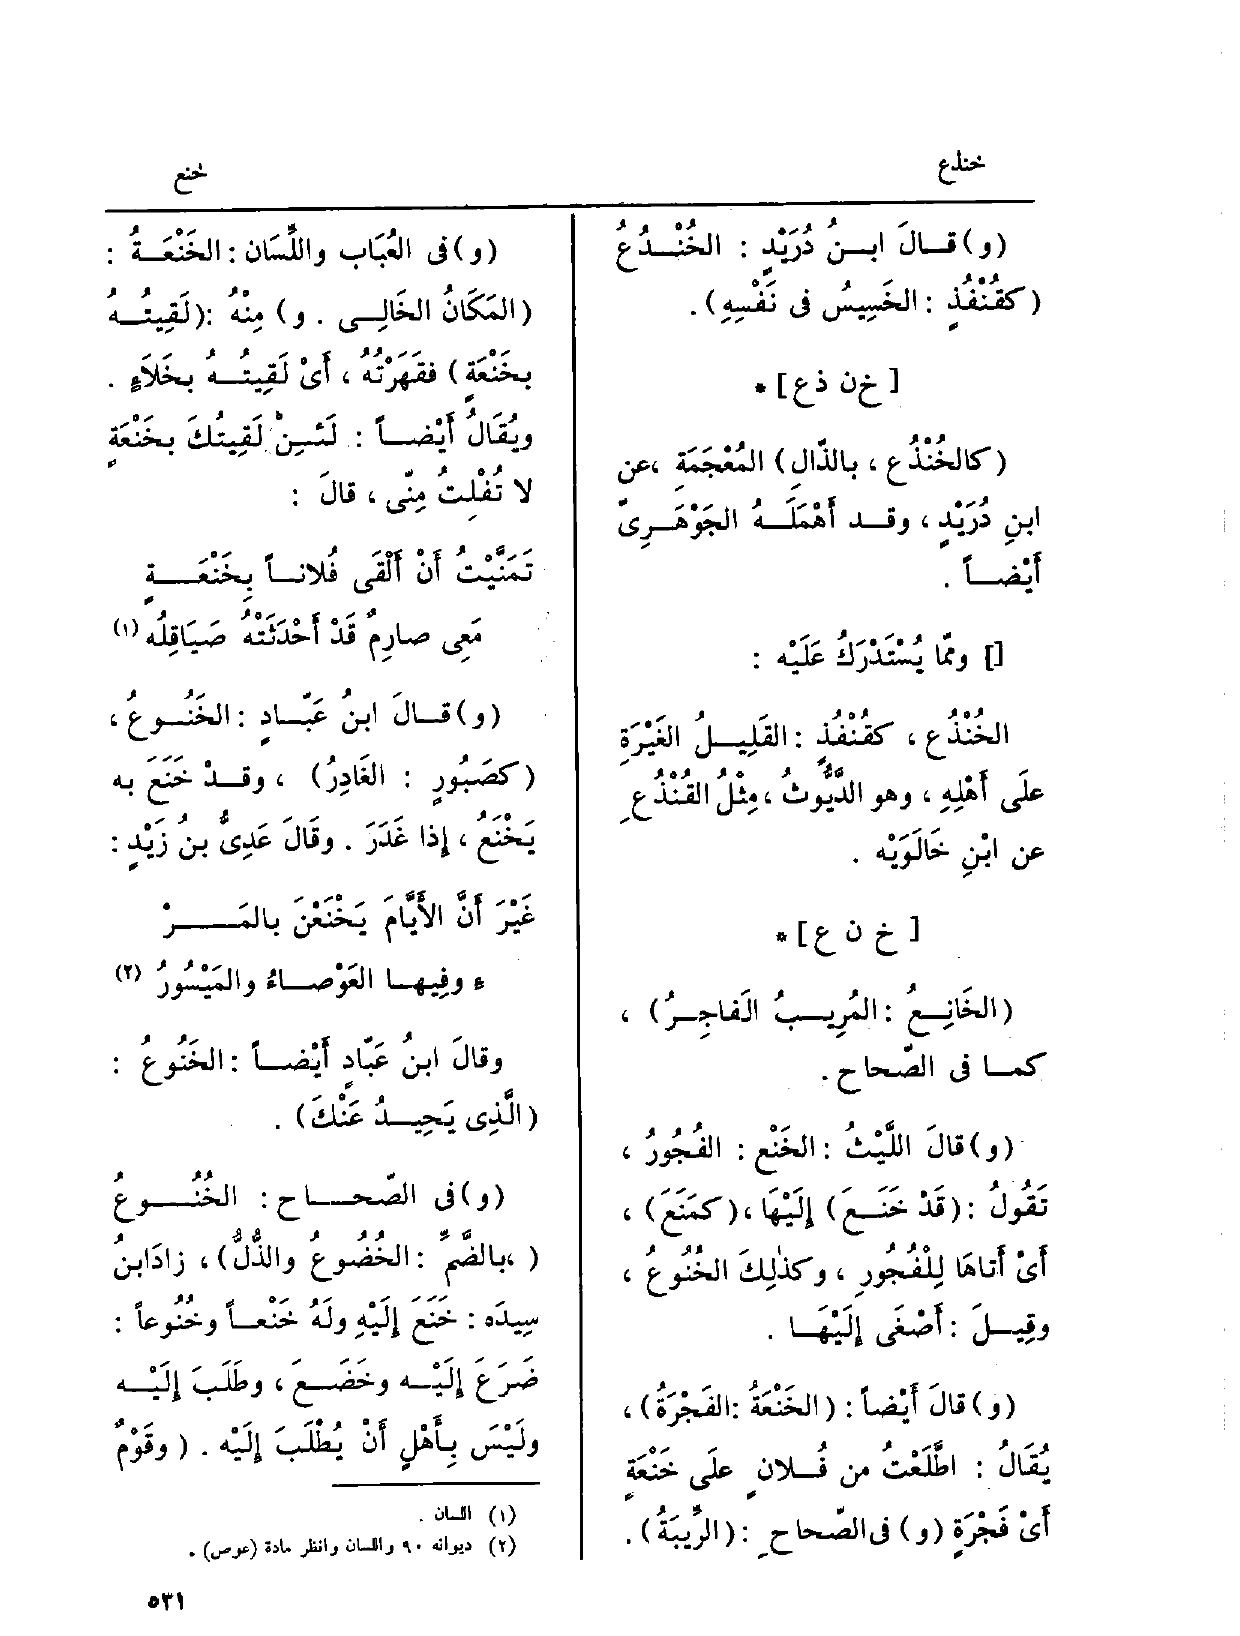 خندع
خنع
(و) قــالَ ابــنُ دُرَيْدٍ : الخُنْــدُعُ
(كقُنْفُذٍ : الخَسِيسُ فى نَفْسِهِ) .
[ خ ن ذ ع ] *
(كالخُنْذُع ، بالذّالِ) المُعْجَمَةِ ،عن
ابنِ دُرَيْدٍ ، وقــد أَهْمَلَــهُ الجَوْهَــرِىّ
أَيْضــاً .
[] وممّا يُسْتَدْرَكُ عَلَيْه :
الخُنْذُع ، كقُنْفُذٍ : القَلِيــلُ الغَيْرَةِ
علَى أَهْلِهِ ، وهو الدَّيُّوثُ ، مِثْلُ القُنْذُعِ
عن ابْنِ خَالَوَيْه .
[ خ ن ع ] *
(الخَانِــعُ : المُرِيــبُ الفاجِــرُ) ،
كمــا فى الصّحاح .
(و) قالَ اللَّيْثُ : الخَنْع : الفُجُورُ ،
تَقُولُ : (قَدْ خَنَــعَ) إِلَيْهَا ، (كمَنَعَ) ،
أَىْ أَتاهَا لِلْفُجُورِ ، وكذٰلِكَ الخُنُوعُ ،
وقِيــلَ : أَصْغَى إِلَيْهَــا .
(و) قالَ أَيْضاً : (الخَنْعَةُ : الفَجْرَةُ) ،
يُقَالُ : اطَّلَعْتُ من فُــلانٍ علَى خَنْعَةٍ
أَىْ فَجْرَةٍ (و) فى الصّحاحِ : (الرِّيبَةُ) .
(و) فى العُبَاب واللِّسَان : الخَنْعَــةُ :
(المَكَانُ الخَالِــى . و) مِنْهُ : (لَقِيتُــهُ
بخَنْعَةٍ) فقَهَرْتُهُ ، أَىْ لَقِيتُــهُ بخَلاَءٍ .
ويُقَالُ أَيْضــاً : لَئــِنْ لَقِيتُكَ بخَنْعَةٍ
لا تُفْلِتُ مِنّى ، قالَ :
تَمَنَّيْتُ أَنْ أَلْقَى فُلانــاً بِخَنْعَــــةٍ
مَعِى صارِمٌ قَدْ أَحْدَثَتْهُ صَيَاقِلُه (١)
(و) قــالَ ابنُ عَبّــادٍ : الخَنُــوعُ ،
(كصَبُورٍ : الغَادِرُ) ، وقــدْ خَنَعَ به
يَخْنَعُ ، إِذا غَدَرَ . وقَالَ عَدِىُّ بنُ زَيْدٍ :
غَيْرَ أَنَّ الأَيَّامَ يَخْنَعْنَ بالمَــــرْ
ءِ وفِيهــا العَوْصــاءُ والمَيْسُورُ (٢)
وقالَ ابنُ عَبّادٍ أَيْضــاً : الخَنُوعُ :
(الَّذِى يَحِيــدُ عَنْكَ) .
(و) فى الصّحــــاح : الخُنُــــوعُ
( ،بالضَّمِّ : الخُضُوعُ والذُّلُّ) ، زادَ ابنُ
سِيدَه : خَنَعَ إِلَيْهِ ولَهُ خَنْعــاً وخُنُوعاً :
ضَرَعَ إِلَيْــه وخَضَــعَ ، وطَلَبَ إِلَيْــه
ولَيْسَ بِأَهْلٍ أَنْ يُطْلَبَ إِلَيْه . (وقَوْمٌ
(١) اللسان .
(٢) ديوانه ٩٠ واللسان وانظر مادة (عوص) .
٥٣١